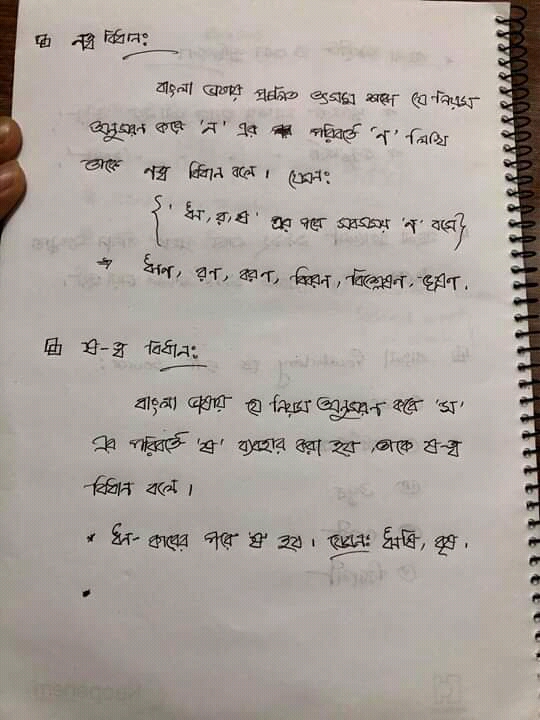 ণত্ব বিধান:
বাংলা ভাষায় প্রচলিত তৎসম শব্দে যে নিয়ম
অনুসরণ করে 'ন' এর পরিবর্তে 'ণ' লিখি
তাকে ণত্ব বিধান বলে। যেমন:
{ 'ঋ, র, ষ' এর পরে সবসময় 'ণ' বসে }
→ ঋণ, রণ, বরণ, বিবরণ, বিশ্লেষণ, ভূষণ।
ষ-ত্ব বিধান:
বাংলা ভাষায় যে নিয়ম অনুসরণ করে 'স'
এর পরিবর্তে 'ষ' ব্যবহার করা হয়, তাকে ষ-ত্ব
বিধান বলে।
* ঋ- কারের পরে 'ষ' হয়। যেমন: ঋষি, বৃষ।